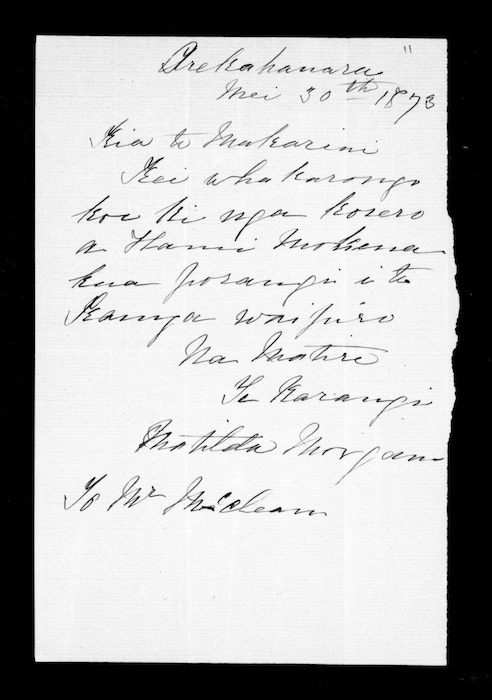 Orekahanara "
Mei 30th 1873
Kia te Makarini
Kei whakarongo
koe ki nga korero
a Hami Mokena
kua porangi i te
Kanga waipiro
Na Matire
Te Karangi
Matilda Morgan
To Mr McClean